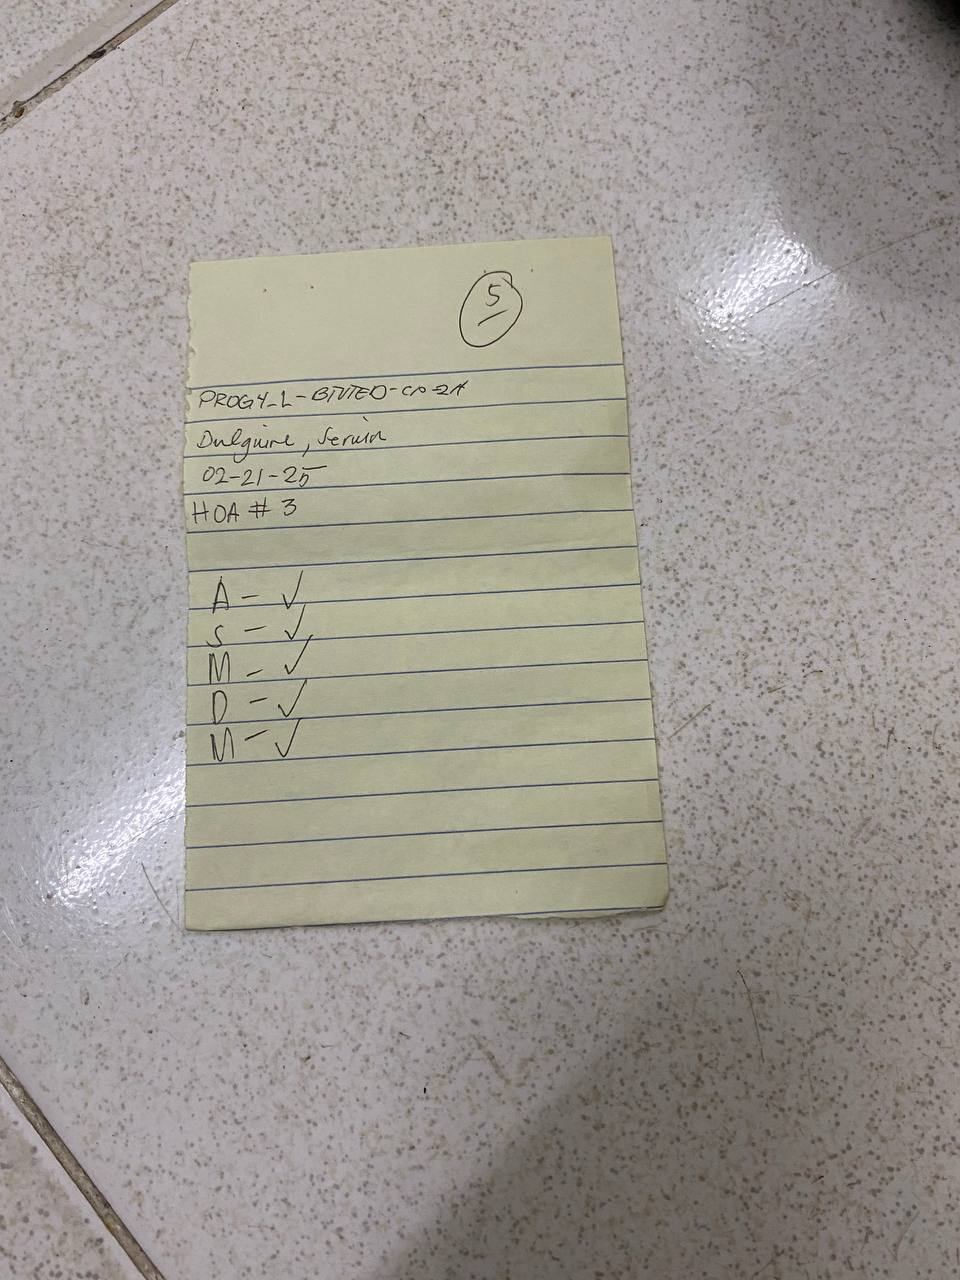 5
PROG4_L-BTVTED-CP-2A
Dulguime, Serwin
02-21-25
HOA # 3
A - ✓
S - ✓
M - ✓
D - ✓
M - ✓